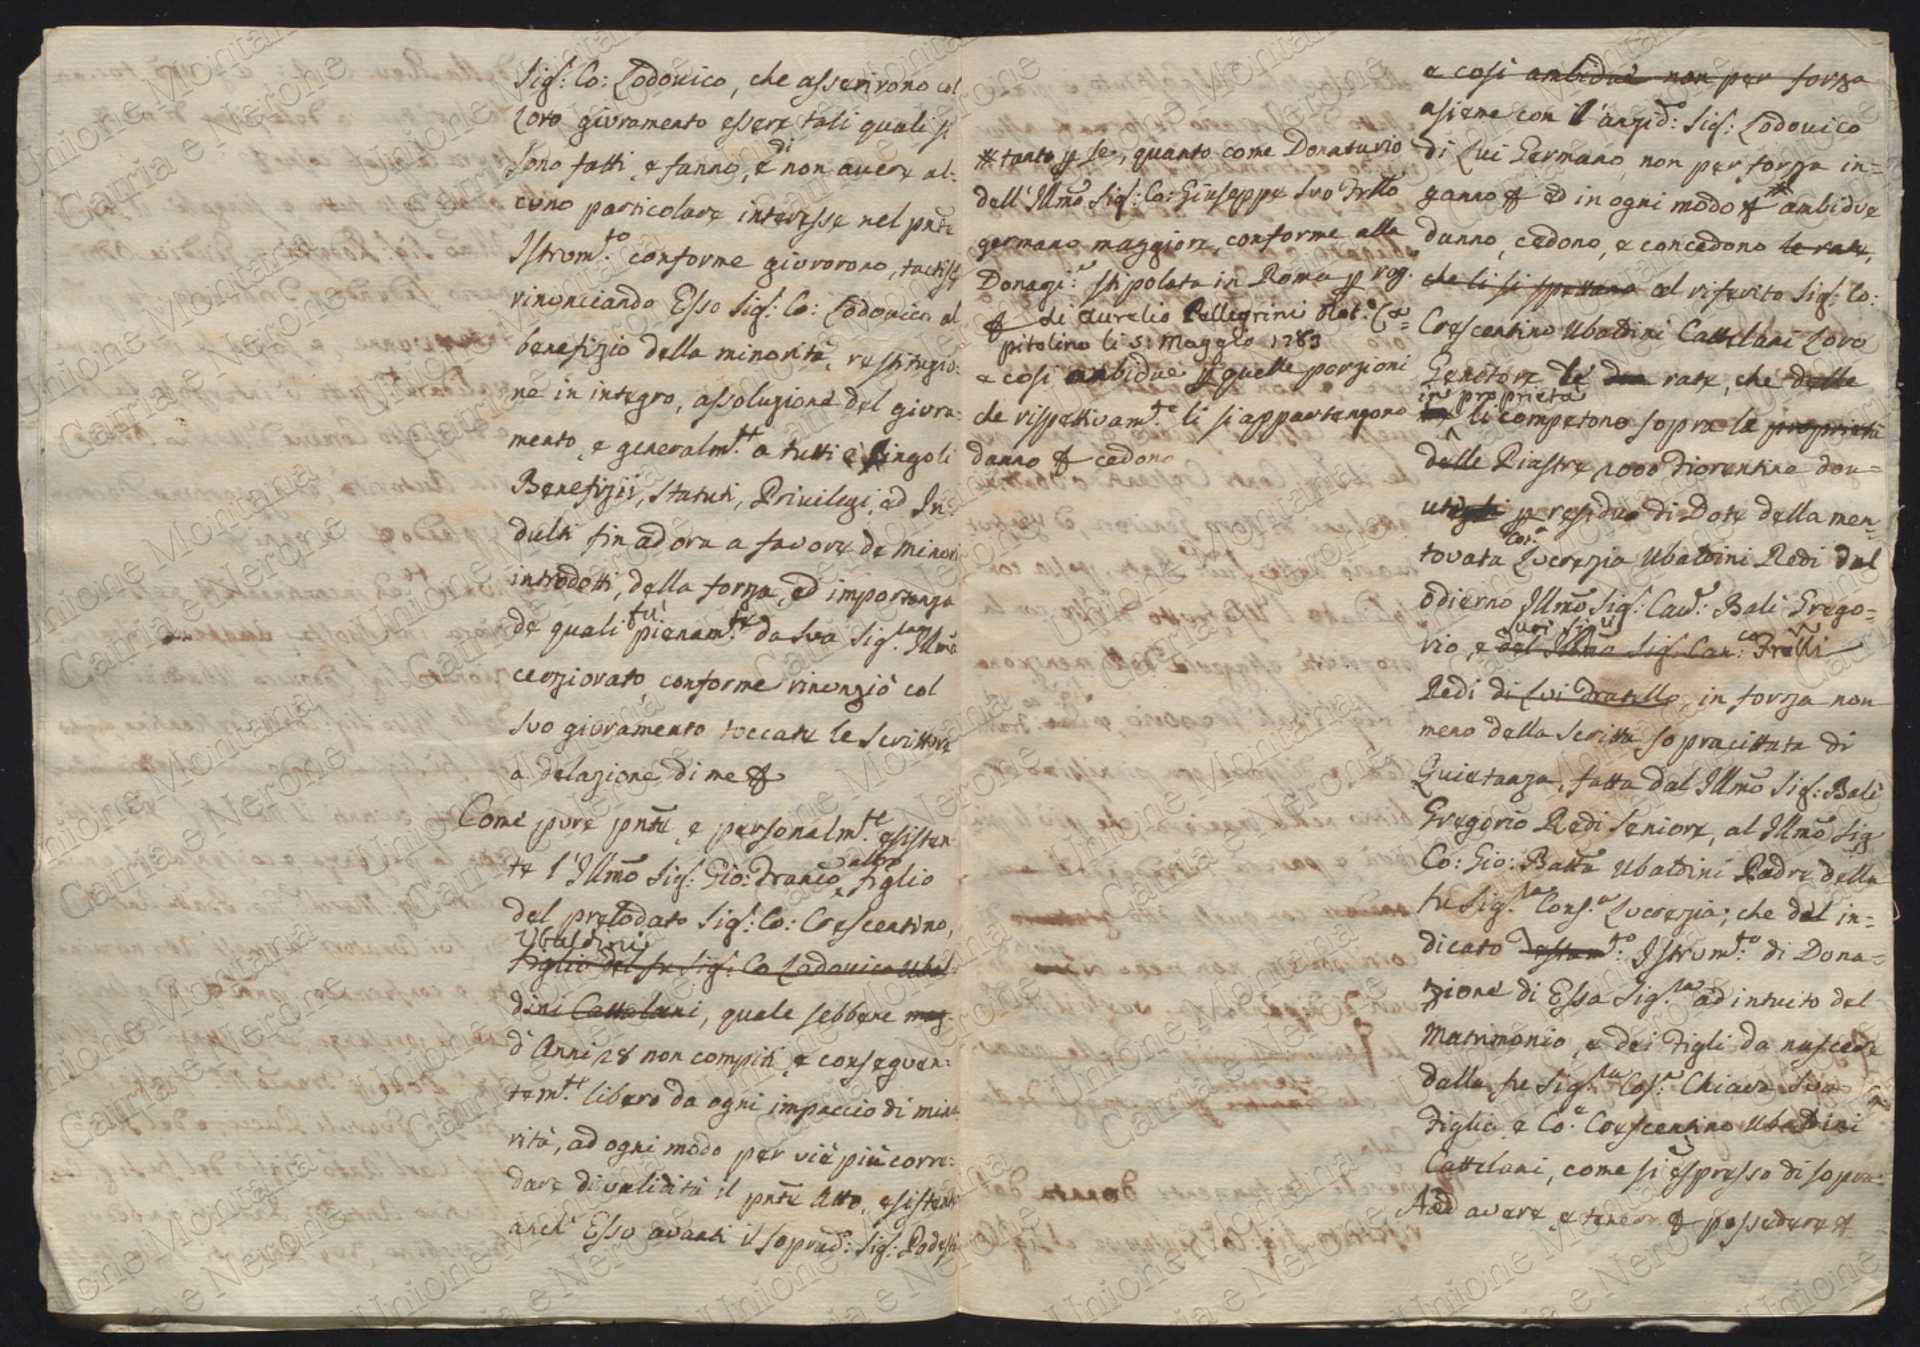 Sig.: Co: Lodovico, che asserirono col
Loro giuramento essere tali quali si
sono fatti, e fanno, e di non avere al-
cuno particolare interesse nel pnte
Istrom.to conforme giurorono, tactis &
rinunciando Esso Sig.: Co: Lodovico al
benefizio della minorità, restituzio-
ne in integro, assoluzione del giura-
mento, e generalm.te a tutti e singoli
Benefizii, Statuti, Privilegi, ad In-
dulti fin ad ora a favore de minori
introdotti, della forza, ed importanza
de quali fù pienam.te da Sua Sig.ria Illma
cerziorato, conforme rinunziò col
suo giuramento toccate le scritture
a delazione di me &
Come pure pnte, e personalm.te esisten-
te l'Illmo Sig.: Gio: Franco altro figlio
del prelodato Sig.: Co: Crescentino,
Ubaldini
figlio del fu Sig.: Co Lodovico Ubal-
dini Cattelani, quale sebbene mag
d'Anni 28 non compiti, e conseguen-
tem.te libero da ogni impaccio di mino
rità, ad ogni modo per viè più corre-
dare di validità il pnte Atto, esistente
anch' Esso avanti il soprad.: Sig.: Podestà
# tanto p se, quanto come Donatario
dell' Illmo Sig.: Co: Giuseppe suo Frllo
germano maggiore, conforme alla
Donazi.e stipolata in Roma p rog.
& di Aurelio Pellegrini Not.o Ca-
pitolino li 5: Maggio 1783
e così ambidue p quelle porzioni
che rispettivam.te li si appartengono
danno & cedono
e così ambidue non per forza
asieme con l'anzid.o Sig.: Lodovico
di Lui Germano, non per forza in-
ganno & ed in ogni modo & # ambidue
danno, cedono, e concedono le rate,
che li si spettano al riferito Sig.: Co:
Crescentino Ubaldini Cattelani Loro
Genitore le due rate, che delle
in proprietà
li competono sopra le proprietà
delle Piastre 1000 Fiorentine dov-
p residuo di Dote della men-
tovata Con.a Lucrezia Ubaldini Redi dal
odierno Illmo Sig.: Cav.: Bali Grego-
rio, e del Illmo Sig. Can.co Frelli
suoi Sig.i
Redi di Lui Fratello, in forza non
meno della scritta sopracittata di
Quietanza, fatta dal Illmo Sig.: Bali
Gregorio Redi Seniore, al Illmo Sig
Co: Gio: Batta Ubaldini Padre della
fu Sig.ra Cons.a Lucrezia; che del in-
dicato Istrom.to di Dona-
zione di Essa Sig.ra ad intuito del
Matrimonio, e dei Figli da nascere
dalla fu Sig.ra Cos.a Chiara Sua
Figlia, e Co.e Crescentino Ubaldini
Cattelani, come si è espresso di sopra-
Aad avere, e tenere & possedere &